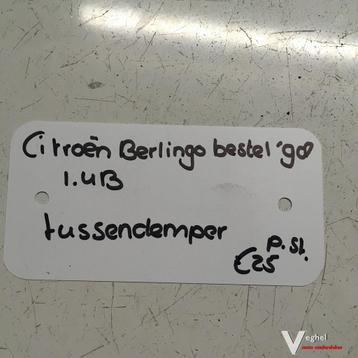 Citroën Berlingo bestel '98
1.4B
tussendemper
p.st.
€25
Veghel